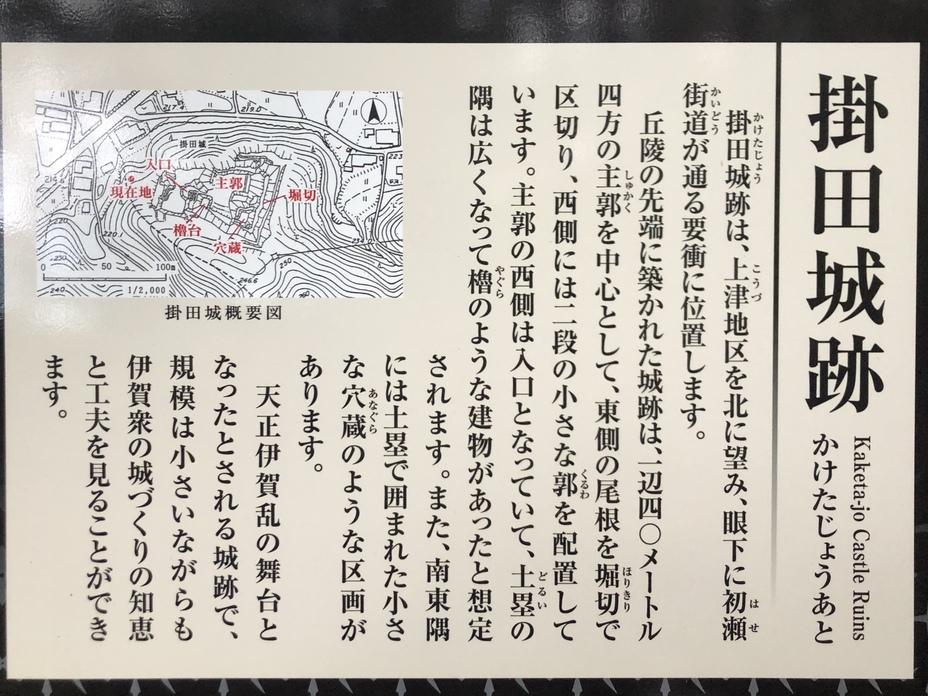 掛田城跡
かけたじょうあと
Kaketa-jo Castle Ruins
掛田城跡は、上津地区を北に望み、眼下に初瀬
かけたじょう
こうづ
はせ
街道が通る要衝に位置します。
かいどう
丘陵の先端に築かれた城跡は、一辺四〇メートル
四方の主郭を中心として、東側の尾根を堀切で
しゅかく
ほりきり
区切り、西側には二段の小さな郭を配置して
くるわ
います。主郭の西側は入口となっていて、土塁の
どるい
隅は広くなって櫓のような建物があったと想定
やぐら
されます。また、南東隅
には土塁で囲まれた小さ
な穴蔵のような区画が
あなぐら
あります。
天正伊賀乱の舞台と
なったとされる城跡で、
規模は小さいながらも
伊賀衆の城づくりの知恵
と工夫を見ることができ
ます。
217.4
219.0
掛田城
入口
現在地
主郭
堀切
櫓台
穴蔵
220
250
240
246.6
250
0 50 100m
1/2,000
掛田城概要図